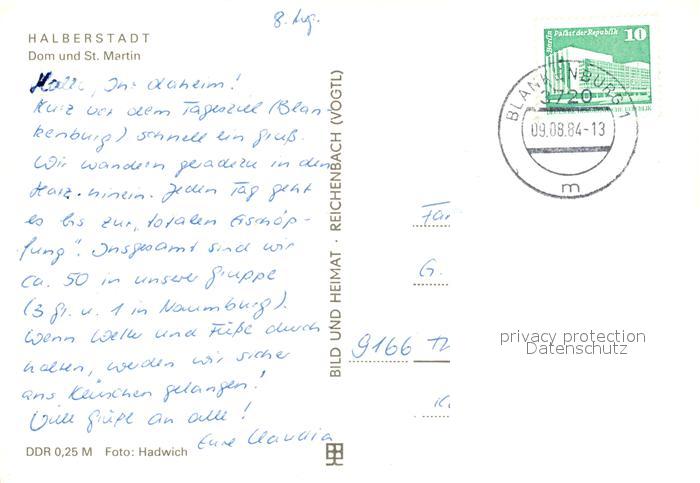 8. Aug.
HALBERSTADT
Dom und St. Martin
Hallo, Ihr daheim!
Kurz vor dem Tagesziel (Blan-
kenburg) schnell ein Gruß.
Wir wandern geradezu in den
Harz hinein. Jeden Tag geht
es bis zur "totalen Erschöp-
fung". Insgesamt sind wir
ca. 50 in unserer Gruppe
(3 Gr. u. 1 in Naumburg).
Wenn Wetter und Füße durch
halten, werden wir sicher
ans gelangen!
Viele Grüße an alle!
Eure Claudia
DDR 0,25 M Foto: Hadwich
BILD UND HEIMAT · REICHENBACH (VOGTL)
Berlin Palast der Republik 10
BLANKENBURG 1
3720
09.08.84-13
m
G.
9166
privacy protection
Datenschutz